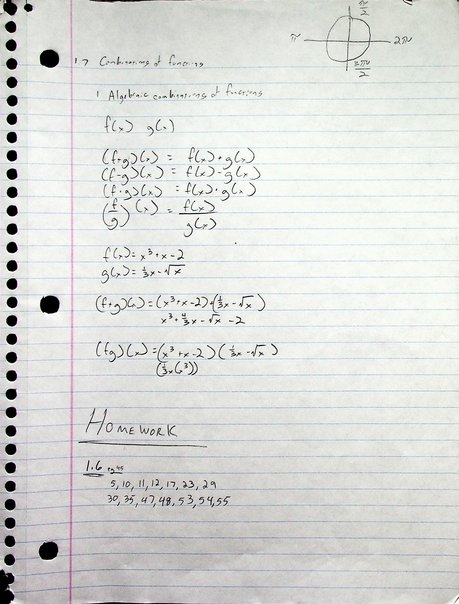 π/2
π 2π
3π/2
1.7 Combinations of functions
1 Algebraic combinations of functions
f(x) g(x)
(f+g)(x) = f(x)+g(x)
(f-g)(x) = f(x)-g(x)
(f·g)(x) = f(x)·g(x)
(f/g)(x) = f(x)/g(x)
f(x)=x³+x-2
g(x)=⅓x-√x
(f+g)(x)=(x³+x-2)+(⅓x-√x)
x³+4/3x-√x-2
(fg)(x)=(x³+x-2)(⅓x-√x)
HOMEWORK
1.6 pg 45
5, 10, 11, 12, 17, 23, 29
30, 35, 47, 48, 53, 54, 55